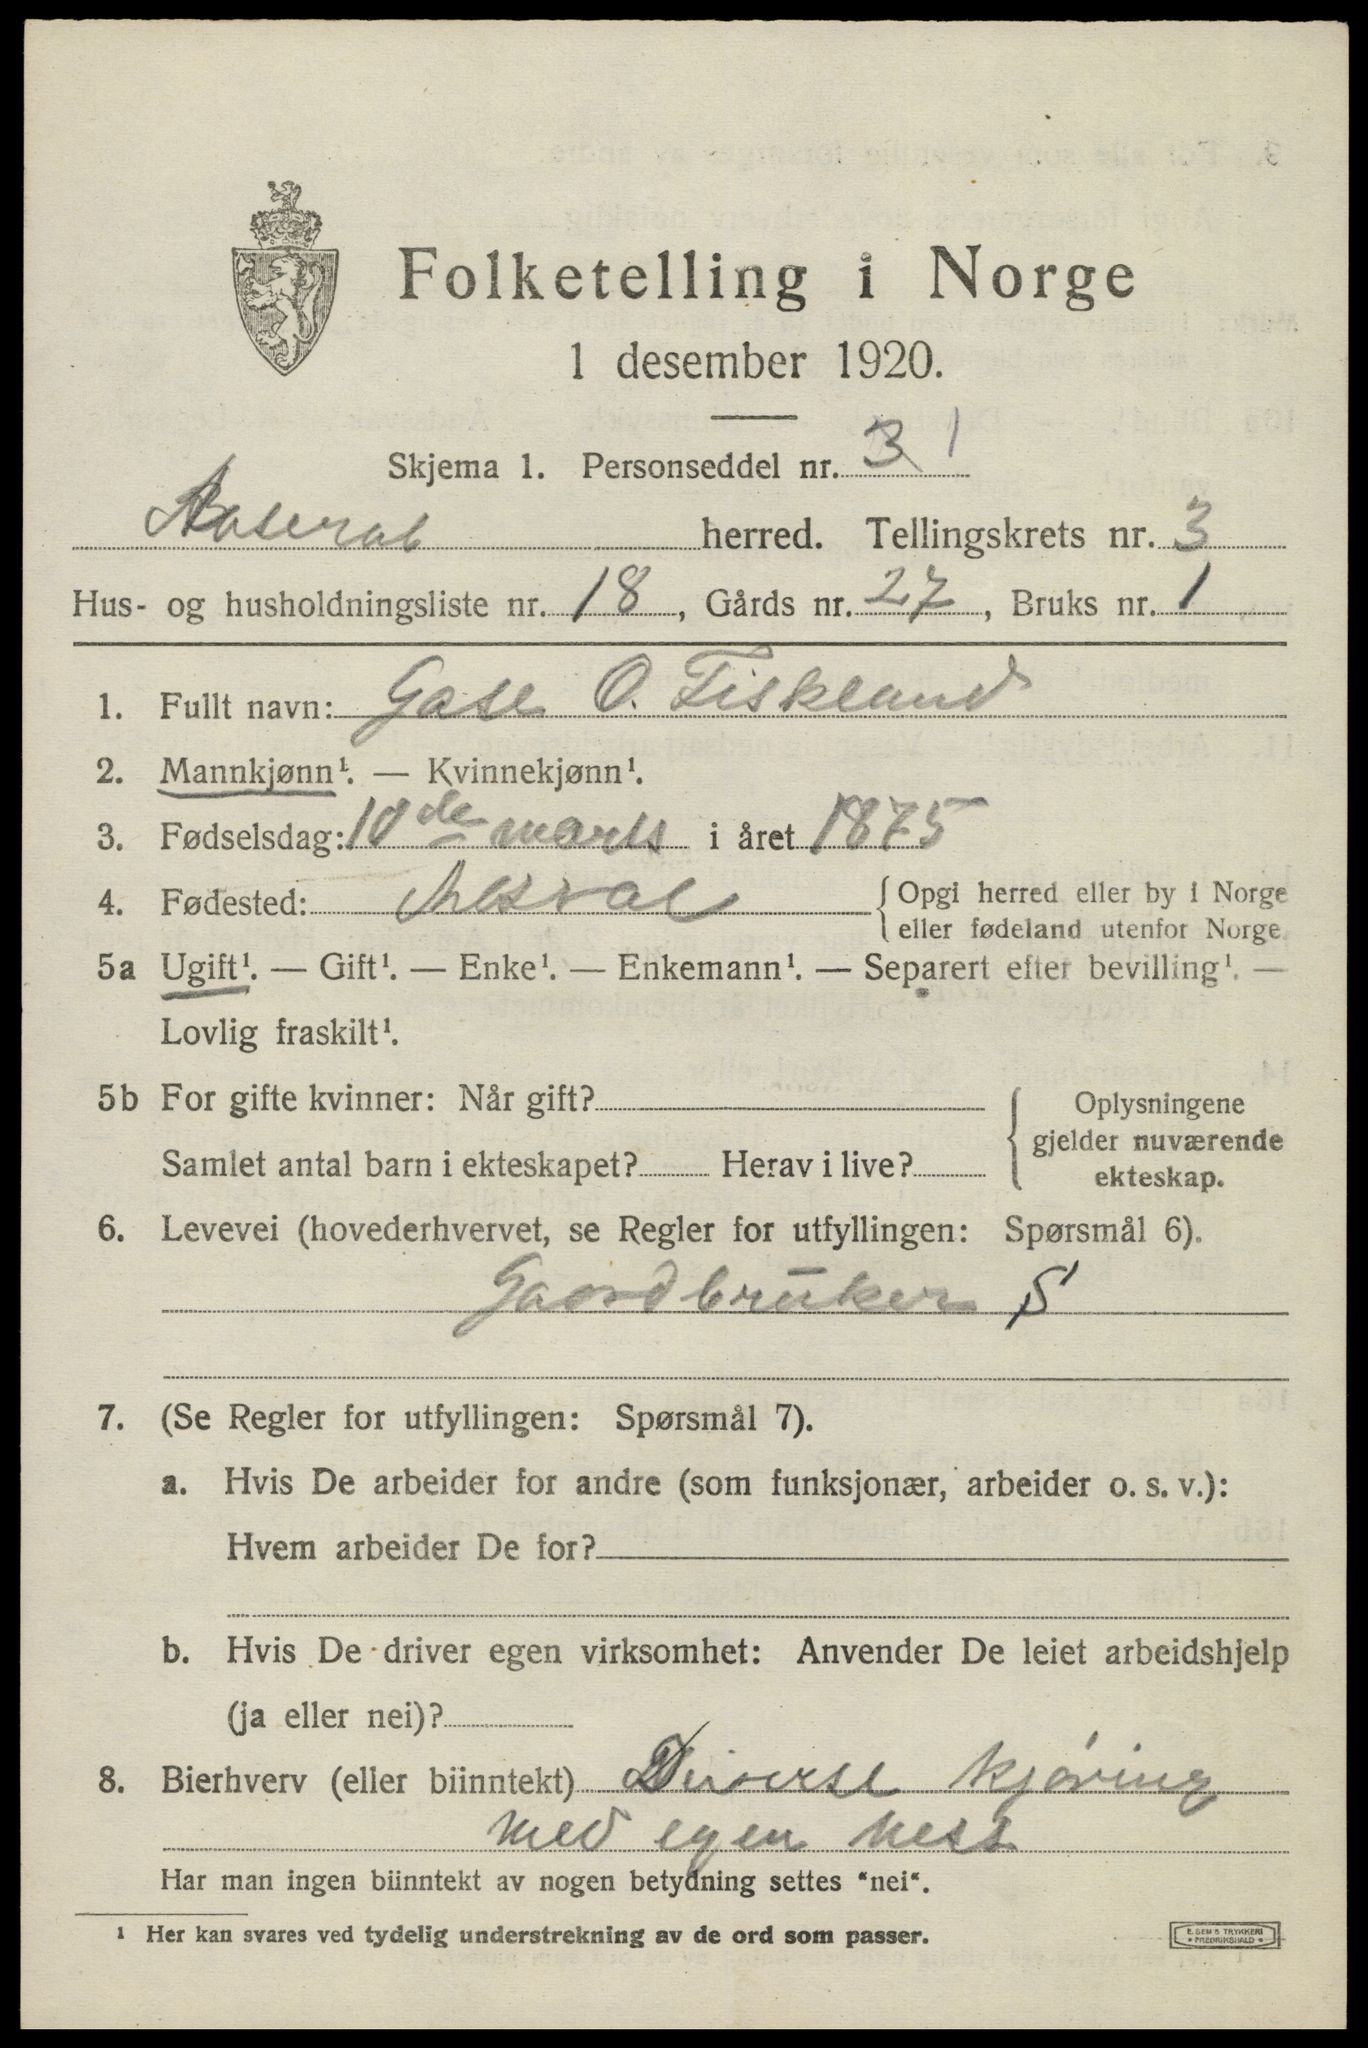 Folketelling i Norge
1 desember 1920.
Skjema 1. Personseddel nr. 3 1
Aaseral herred. Tellingskrets nr. 3
Hus- og husholdningsliste nr. 18, Gårds nr. 27, Bruks nr. 1
1. Fullt navn: Gase O. Fiskland
2. Mannkjønn¹. — Kvinnekjønn¹.
3. Fødselsdag: 10de marts i året 1875
4. Fødested: { Opgi herred eller by i Norge
eller fødeland utenfor Norge
5a Ugift¹. — Gift¹. — Enke¹. — Enkemann¹. — Separert efter bevilling¹. —
Lovlig fraskilt¹.
5b For gifte kvinner: Når gift?
Samlet antal barn i ekteskapet? Herav i live?
{ Oplysningene
gjelder nuværende
ekteskap.
6. Levevei (hovederhvervet, se Regler for utfyllingen: Spørsmål 6).
Gaardbruker S
7. (Se Regler for utfyllingen: Spørsmål 7).
a. Hvis De arbeider for andre (som funksjonær, arbeider o. s. v.):
Hvem arbeider De for?
b. Hvis De driver egen virksomhet: Anvender De leiet arbeidshjelp
(ja eller nei)?
8. Bierhverv (eller biinntekt) Diverse kjøring
med egen hest
Har man ingen biinntekt av nogen betydning settes "nei".
¹ Her kan svares ved tydelig understrekning av de ord som passer.
E. SEM'S TRYKKERI
FREDRIKSHALD